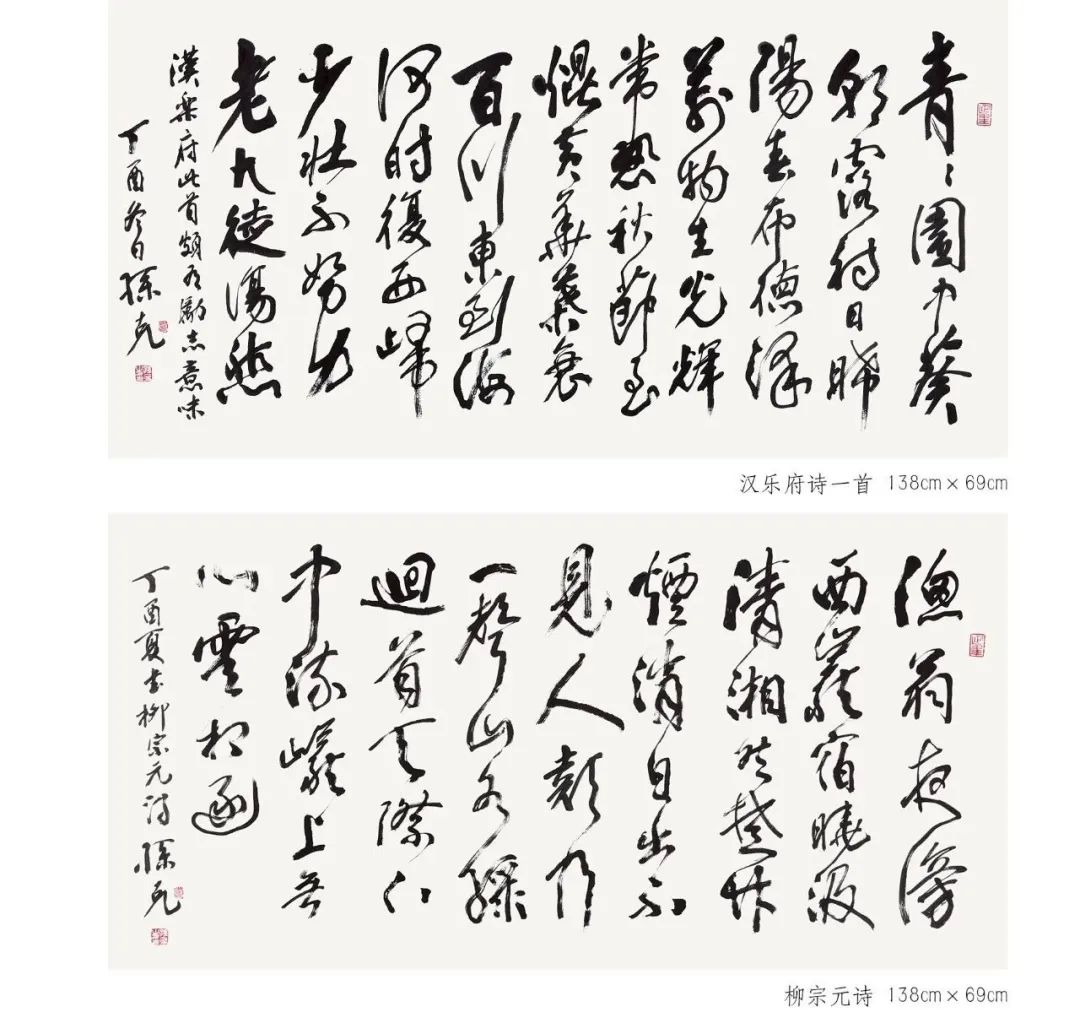 青〻園中葵
朝露待日晞
陽春布德澤
萬物生光輝
常恐秋節至
焜黃華葉衰
百川東到海
何時復西歸
少壯不努力
老大徒傷悲
漢樂府此首頗有勵志意味
丁酉冬日孫克
汉乐府诗一首 138cm×69cm
漁翁夜傍
西巖宿曉汲
清湘然楚竹
煙消日出不
見人欸乃
一聲山水綠
迴首天際下
中流巖上無
心雲相逐
丁酉夏書柳宗元詩 孫克
柳宗元诗 138cm×69cm